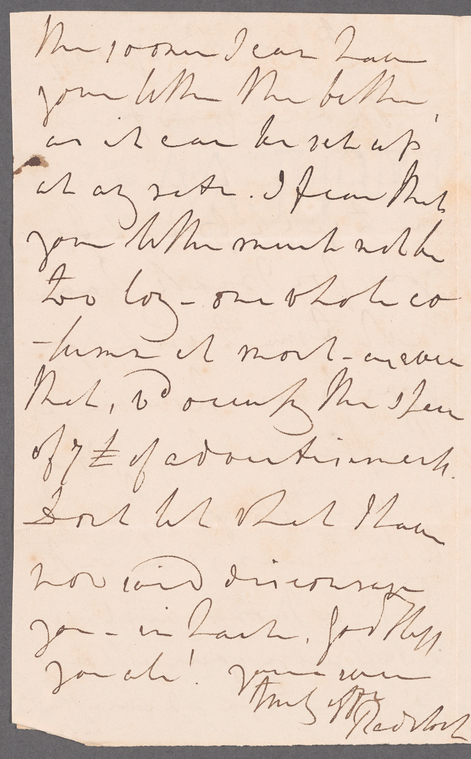 The sooner I can have
your letter the better,
as it can be set up
at any rate. I fear that
your letter must not be
too long - one whole co
-lumn at most - or even
that, wd occupy the space
of 7 £ of advertisements.
Don't let what I have
now said discourage
you - in haste, God bless
you all! yours ever
truly